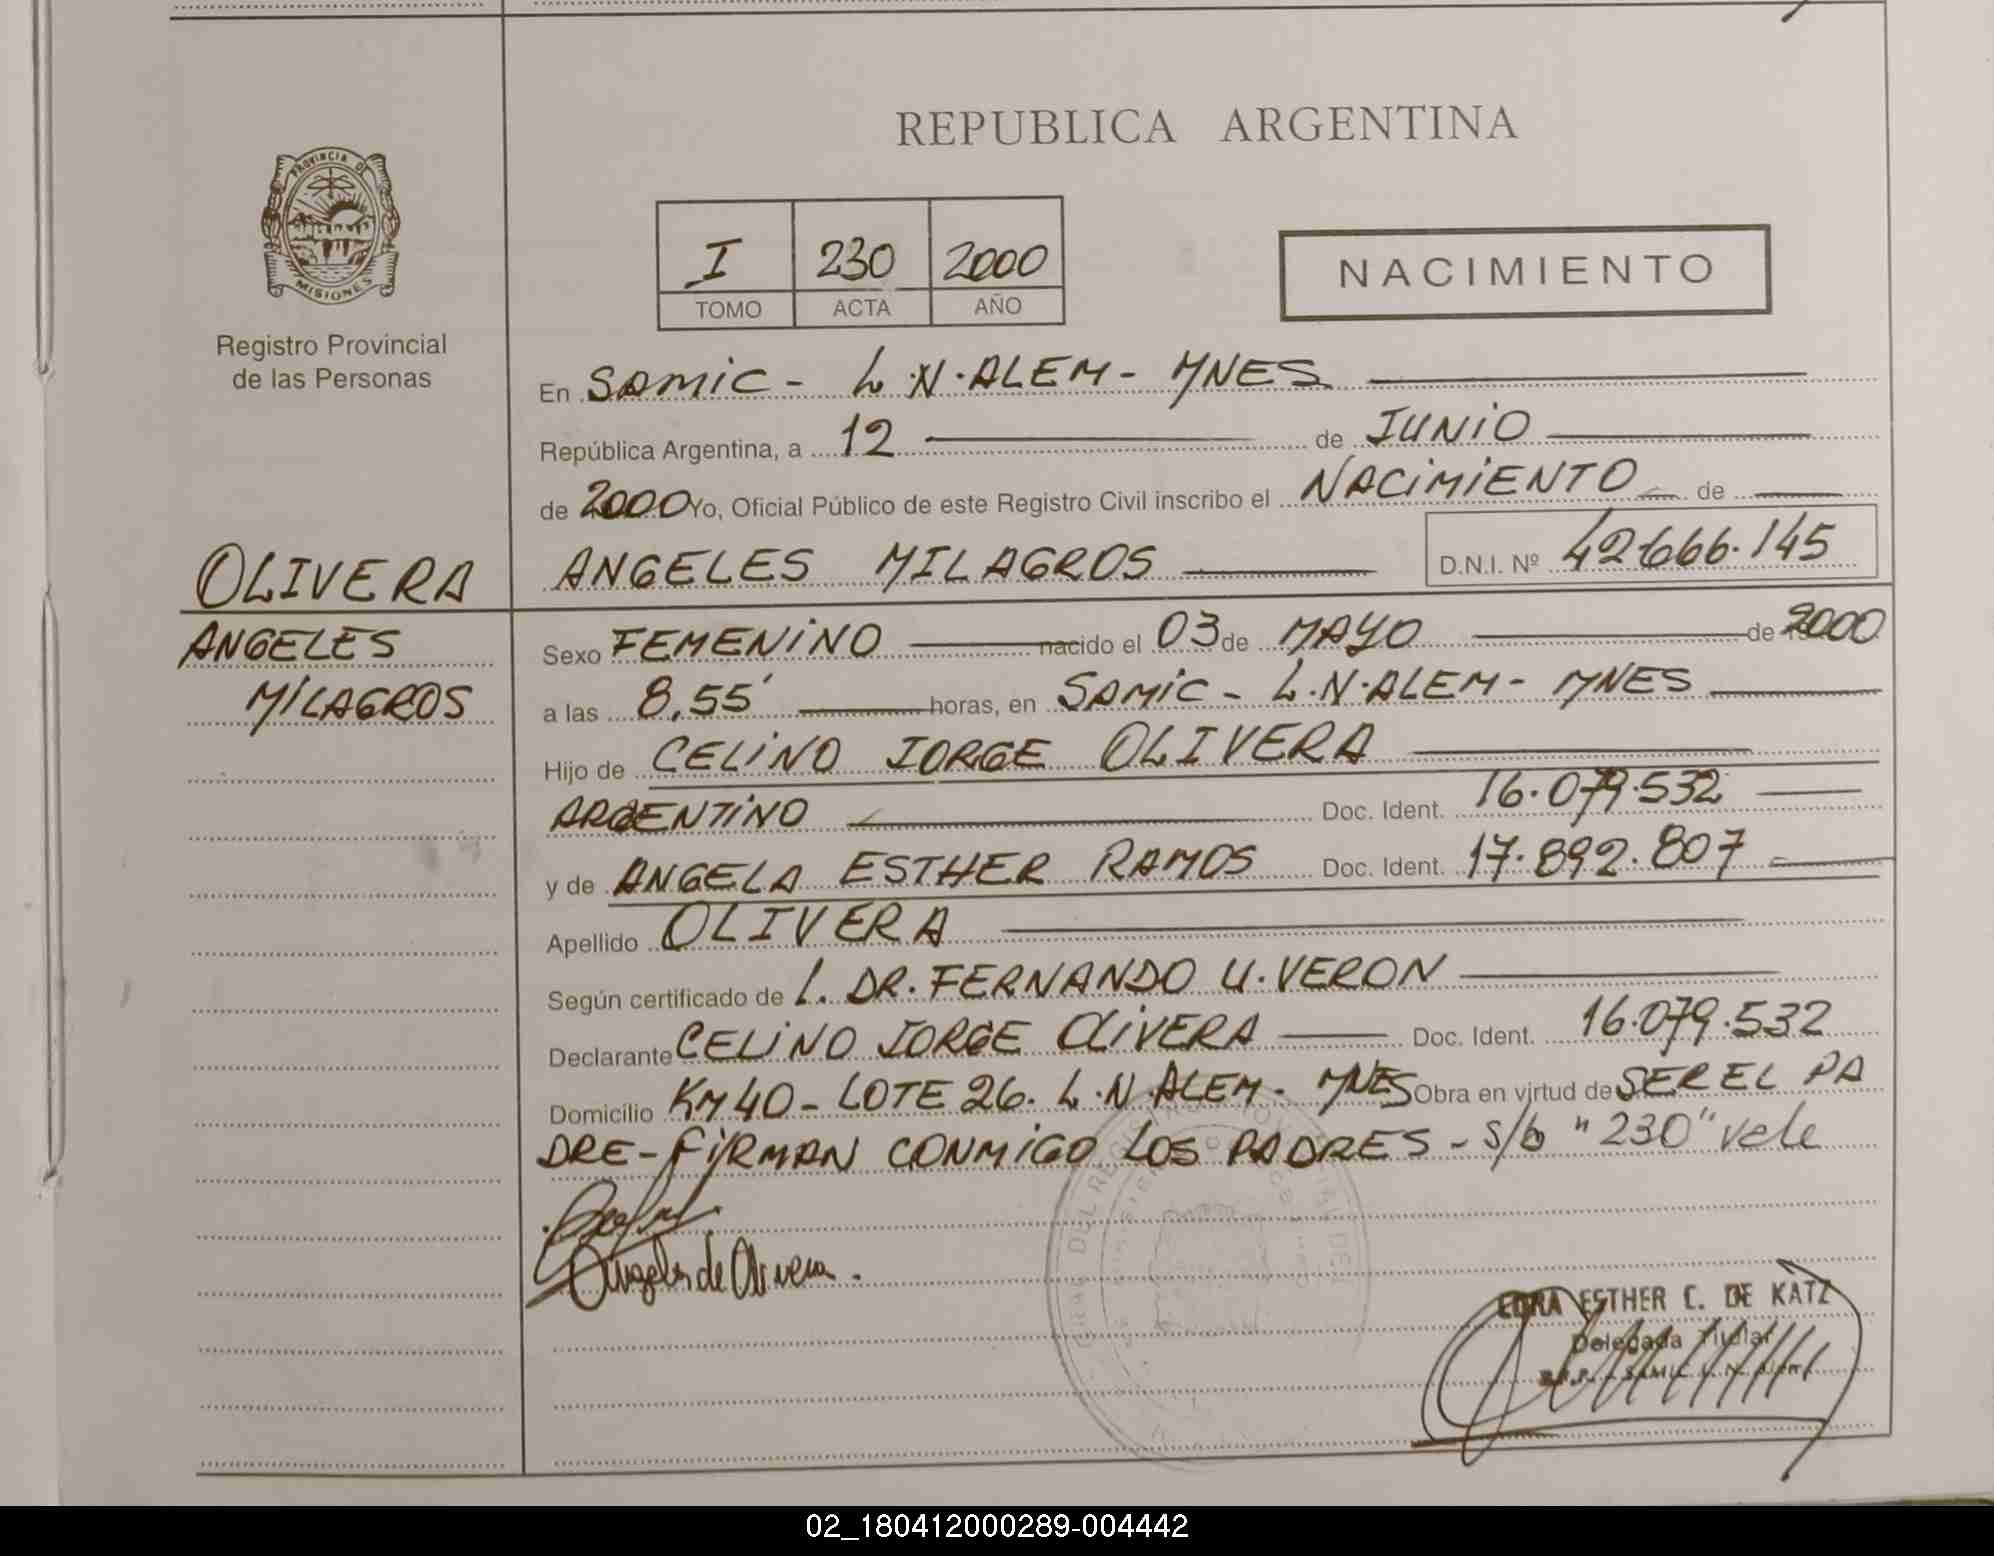 REPUBLICA ARGENTINA
PROVINCIA DE
MISIONES
Registro Provincial
de las Personas
I 230 2000
TOMO ACTA AÑO
NACIMIENTO
En SAMIC - L.N.ALEM - MNES
República Argentina, a 12 de JUNIO
de 2000 Yo, Oficial Público de este Registro Civil inscribo el NACIMIENTO de
OLIVERA ANGELES MILAGROS D.N.I. Nº 42666.145
ANGELES
MILAGROS
Sexo FEMENINO nacido el 03 de MAYO de 2000
a las 8,55' horas, en SAMIC - L.N.ALEM - MNES
Hijo de CELINO JORGE OLIVERA
ARGENTINO Doc. Ident. 16.079.532
y de ANGELA ESTHER RAMOS Doc. Ident. 17.892.807
Apellido OLIVERA
Según certificado de l. DR. FERNANDO U. VERON
Declarante CELINO JORGE OLIVERA Doc. Ident. 16.079.532
Domicilio KM 40 - LOTE 26. L.N ALEM - MNES Obra en virtud de SER EL PA
DRE - FIRMAN CONMIGO LOS PADRES - s/b "230" vale
Angela de Olivera.
ESTHER C. DE KATZ
Delegada Titular
02_180412000289-004442